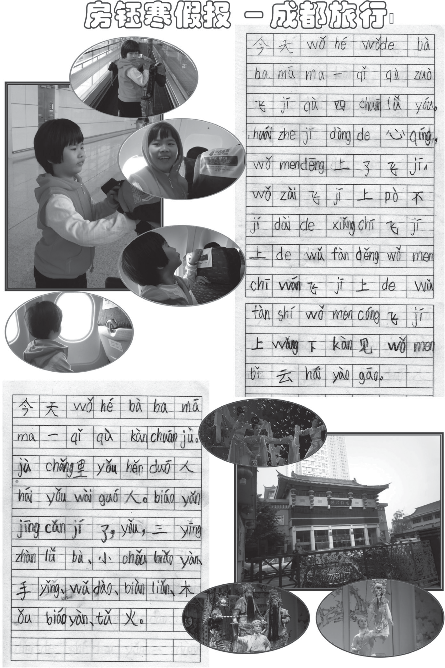 房钰寒假报 - 成都旅行
今天 wǒ hé wǒde bà
ba mā ma 一 qǐ qù zuò
飞 jī qù 四 chuān lǚ yóu。
huái zhe jī dòng de 心 qíng,
wǒ men dēng 上 了 飞 jī。
wǒ zài 飞 jī 上 pò 不
jí dài de xiǎng chī 飞 jī
上 de wǔ fàn děng wǒ men
chī wán 飞 jī 上 de wǔ
fàn shí wǒ men cóng 飞 jī
上 wǎng 下 kàn 见 wǒ men
bǐ 云 hái yào gāo。
今天 wǒ hé bà ba mā
ma 一 qǐ qù kàn chuān jù。
jù chǎng 里 yǒu hěn duō 人
hái yǒu wài guó 人。biǎo yǎn
jīng cǎi jí 了, yǒu, 三 yīng
zhàn lǚ bù、小 chǒu biǎo yǎn、
手 yǐng、wǔ dǎo、biàn liǎn、木
ǒu biǎo yǎn、tǔ 火。